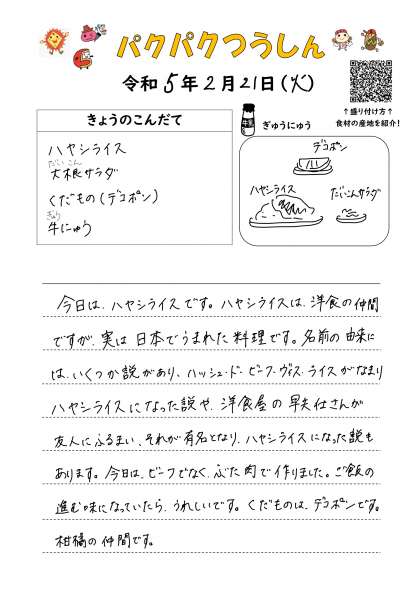 パクパクつうしん
令和5年2月21日(火)
↑盛り付け方↑
食材の産地を紹介!
きょうのこんだて
ハヤシライス
だいこん
大根サラダ
くだもの(デコポン)
ぎゅう
牛にゅう
ぎゅうにゅう
デコポン
ハヤシライス
だいこんサラダ
今日は、ハヤシライスです。ハヤシライスは、洋食の仲間
ですが、実は日本でうまれた料理です。名前の由来に
は、いくつか説があり、ハッシュ・ド・ビーフ・ウィズ・ライスがなまり
ハヤシライスになった説や、洋食屋の早矢仕さんが
友人にふるまい、それが有名となり、ハヤシライスになった説も
あります。今日は、ビーフでなく、ぶた肉で作りました。ご飯の
進む味になっていたら、うれしいです。くだものは、デコポンです。
柑橘の仲間です。